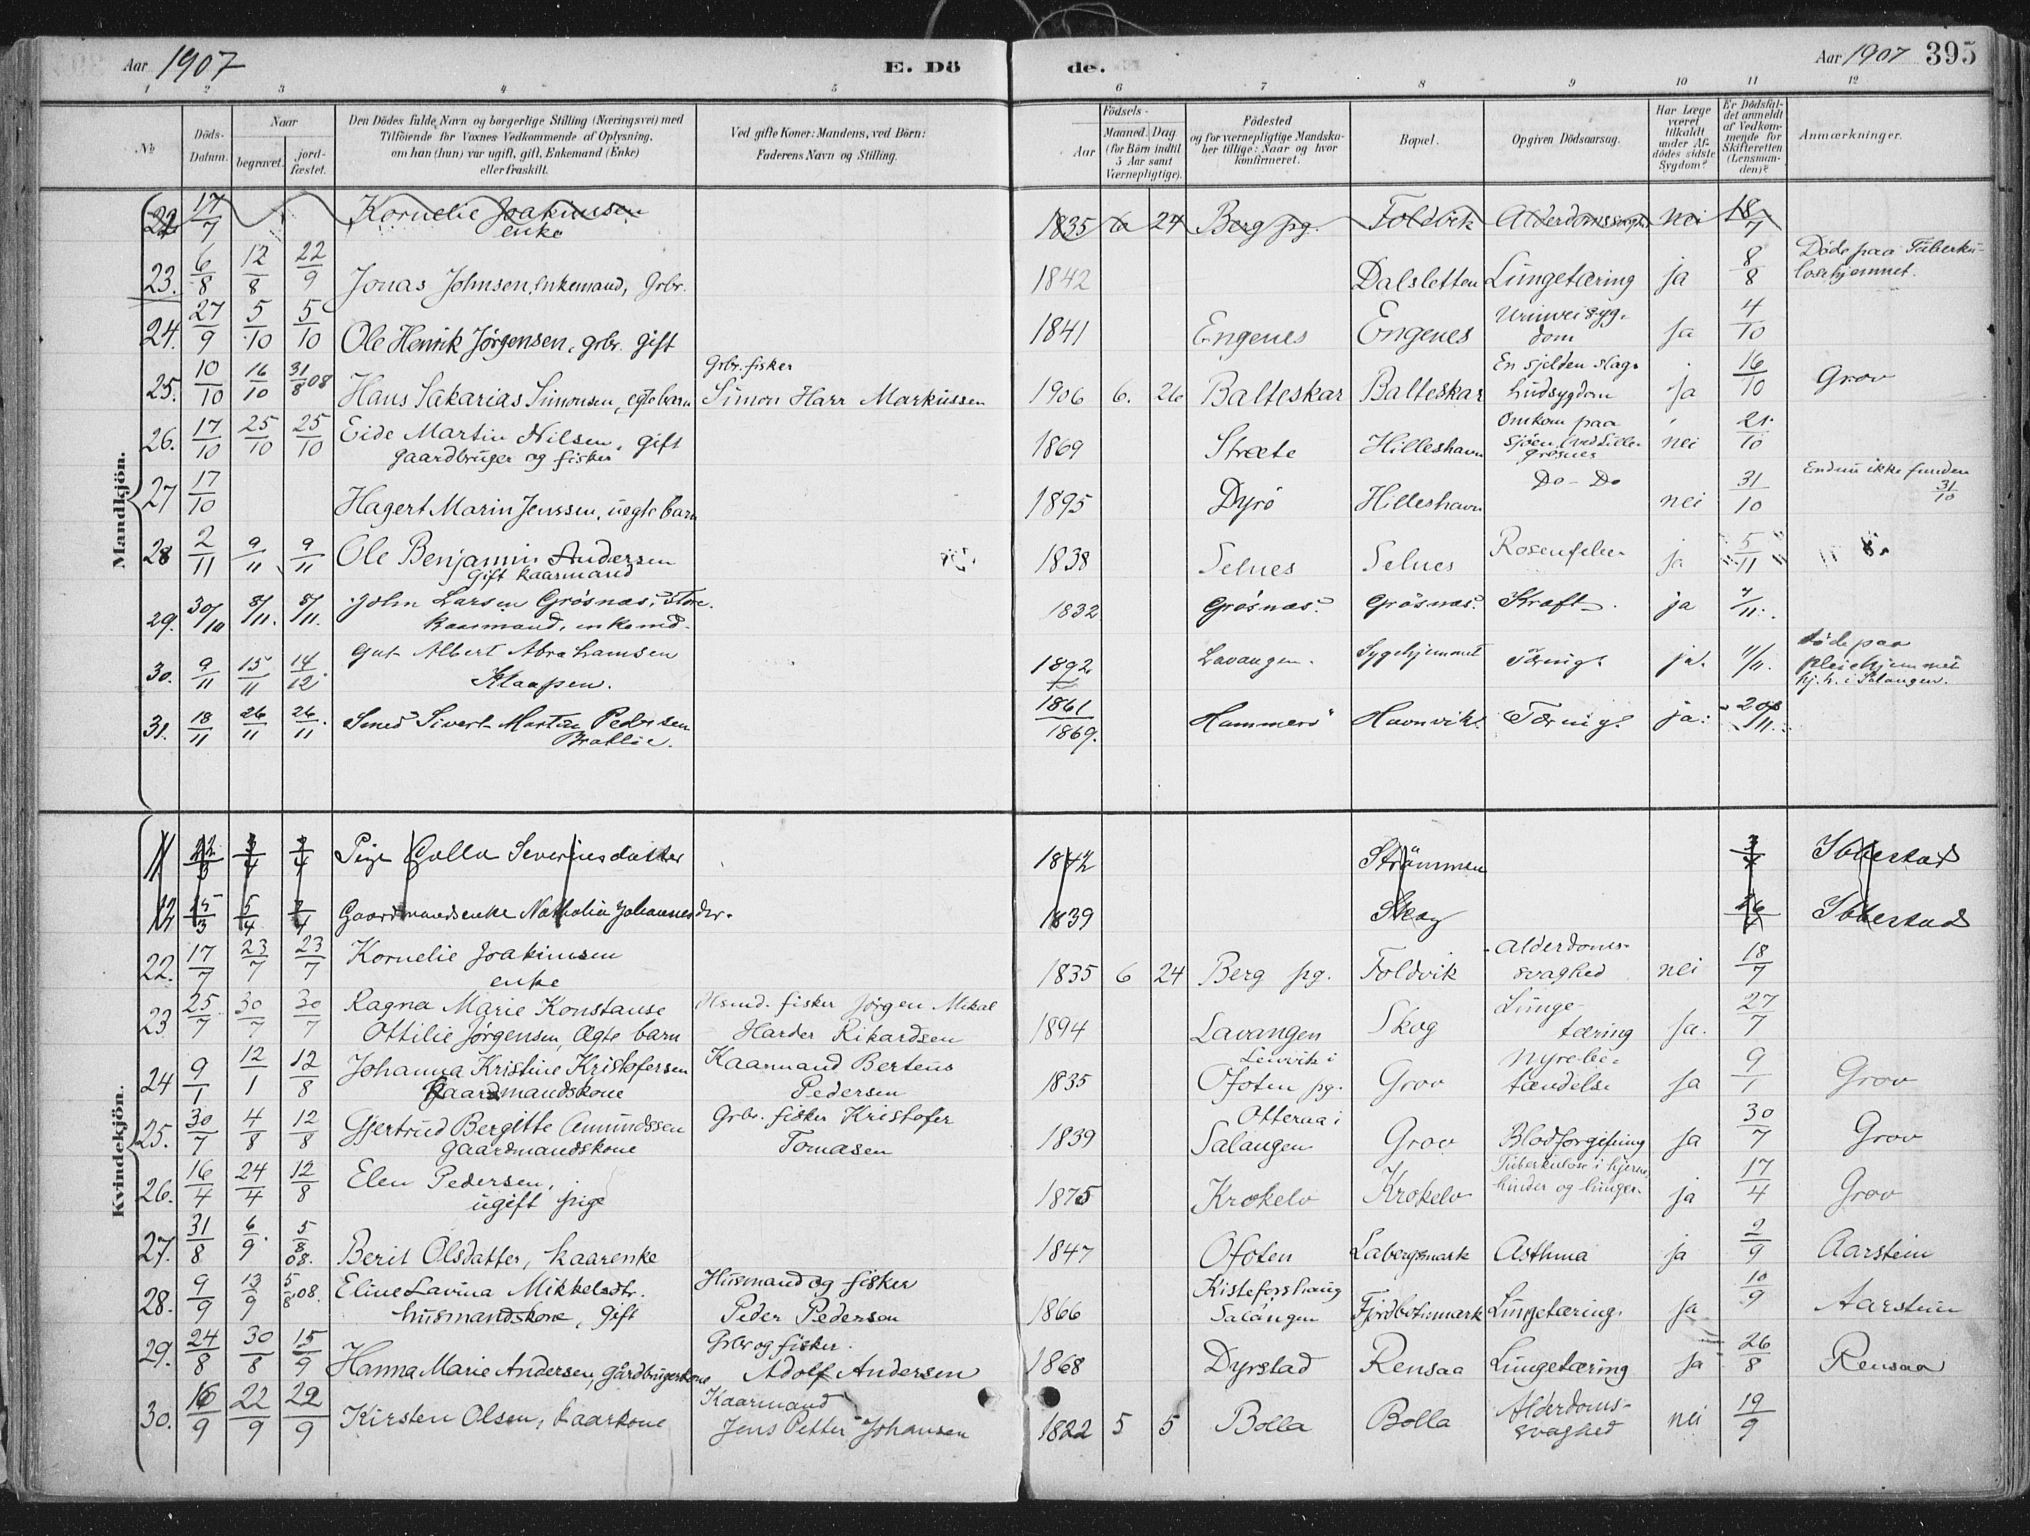 Aar 1907
E. Dö de.
Aar 1907 395
1 2 3 4 5 6 7 8 9 10 11 12
No
Döds-Datum.
Naar
begravet.
jordfæstet.
Den Dödes fulde Navn og borgerlige Stilling (Næringsvei) med
Tilföiende for Voxnes Vedkommende af Oplysning,
om han (hun) var ugift, gift, Enkemand (Enke)
eller fraskilt.
Ved gifte Koner: Mandens, ved Börn:
Faderens Navn og Stilling.
Födsels-
Aar
Maaned. Dag
(for Börn indtil
5 Aar samt
Værnepligtige).
Födested
og for værnepligtige Mandskaber tillige: Naar og hvor
konfirmeret.
Bopæl.
Opgiven Dödsaarsag.
Har Læge
været
tilkaldt
under Afdödes sidste
Sygdom?
Er Dödsfaldet anmeldt
af Vedkommende for
Skifteretten
(Lensmanden)?
Anmærkninger.
Mandkjön.
22 17/7 Kornelie Joakimsen enke 1835 6 24 Berg pg. Foldvik Alderdomssvaghed nei 18/7
23. 6/8 12/8 22/9 Jonas Johnsen, Enkemand, Grbr. 1842 Dalsletten Lungetæring ja 8/8 Døde paa Tuberkulosehjemmet.
24. 27/9 5/10 5/10 Ole Henrik Jörgensen, grbr. gift 1841 Engenes Engenes Urinveisygdom Ja 4/10
25. 10/10 16/10 31/8 08 Hans Sakarias Simonsen, egte barn Grbr. fisker Simon Harr Markussen 1906 6. 26 Balteskar Balteskar En sjelden slags hudsygdom Ja 16/10 Grov
26. 17/10 25/10 25/10 Eide Martin Nilsen, gift gaardbruger og fisker 1869 Stræte Hilleshavn Omkom paa sjøen (ved Lille Grøsnes nei 21/10
27 17/10 Hagert Marin Jenssen, uegte barn 1895 Dyrö Hilleshavn Do - Do nei 31/10 Endnu ikke funden 31/10
28 2/11 9/11 9/11 Ole Benjamin Andersen gift kaarmand 1838 Selnes Selnes Rosenfeber ja 5/11
29. 30/10 8/11. 8/11. John Larsen Grösnæs, Store. kaarmand, enkemd. 1832 Grösnæs. Grösnæs. Kræft. ja 7/11.
30. 9/11 15/11 14/12 Gut Albert Abrahamsen Klaapen. 1892 Lavangen. Sygehjemmet Tæring. ja. 11/11. døde paa pleiehjemmet hj.h. i Salangen.
31. 18/11 26/11 26/11 Smed Sivert Martin Pedersen Bratlie. 1861/1869. Hammerö Havnvik. Tæring. ja. 20/11.
Kvindekjön.
11 22/3 3/4 3/4 Pige Golla Severinesdatter 1842 Strömmen 3/4 Ibbestad
12 15/3 5/4 3/4 Gaardmandsenke Nathalia Johannesdtr. 1839 Skog 26/4 Ibbestad
22. 17/7 23/7 23/7 Kornelie Joakimsen enke 1835 6 24 Berg pg. Foldvik Alderdomssvaghed nei 18/7
23 25/7 30/7 30/7 Ragna Marie Konstanse Ottilie Jørgensen, Ægte barn Hsmd. fisker Jørgen Mikal Harder Rikardsen 1894 Lavangen Skog Lungetæring Ja. 27/7
24 9/1 12/1 12/8 Johanna Kristine Kristofersen Kaarmandskone Kaarmand Berteus Pedersen 1835 Leirvik i Ofoten pg. Grov Nyrebetændelse Ja 9/1 Grov
25. 30/7 4/8 12/8 Gjertrud Bergitte Amundssen gaardmandskone Grbr. fisker Kristofer Tomasen 1839 Otteraa i Salangen Grov Blodforgifning Ja 30/7 Grov
26. 16/4 24/4 12/8 Elen Pedersen, ugift pige 1875 Krokelv Krokelv Tuberkulose i hjernehinder og lunger. ja 17/4 Grov
27. 31/8 6/9 5/8 08. Berit Olsdatter, kaarenke 1847 Ofoten Labergsmark Asthma ja 2/9 Aarstein
28. 9/9 13/9 5/8 08. Eline Lavina Mikkelsdtr. husmandskone, gift Husmand og fisker Peder Pedersen 1866 Kisteforshaug Salangen Fjordbotnmark Lungetæring. Ja 10/9 Aarstein
29. 24/8 30/8 15/9 Hanna Marie Andersen, gårdbrugerkone Grbr og fisker. Adolf Andersen 1868 Dyrstad Rensaa Lungetæring Ja 26/8 Rensaa
30. 16/9 22/9 22/9 Kirsten Olsen, kaarkone Kaarmand Jens Petter Johansen 1822 5 5 Bolla Bolla Alderdomssvaghed nei 19/9